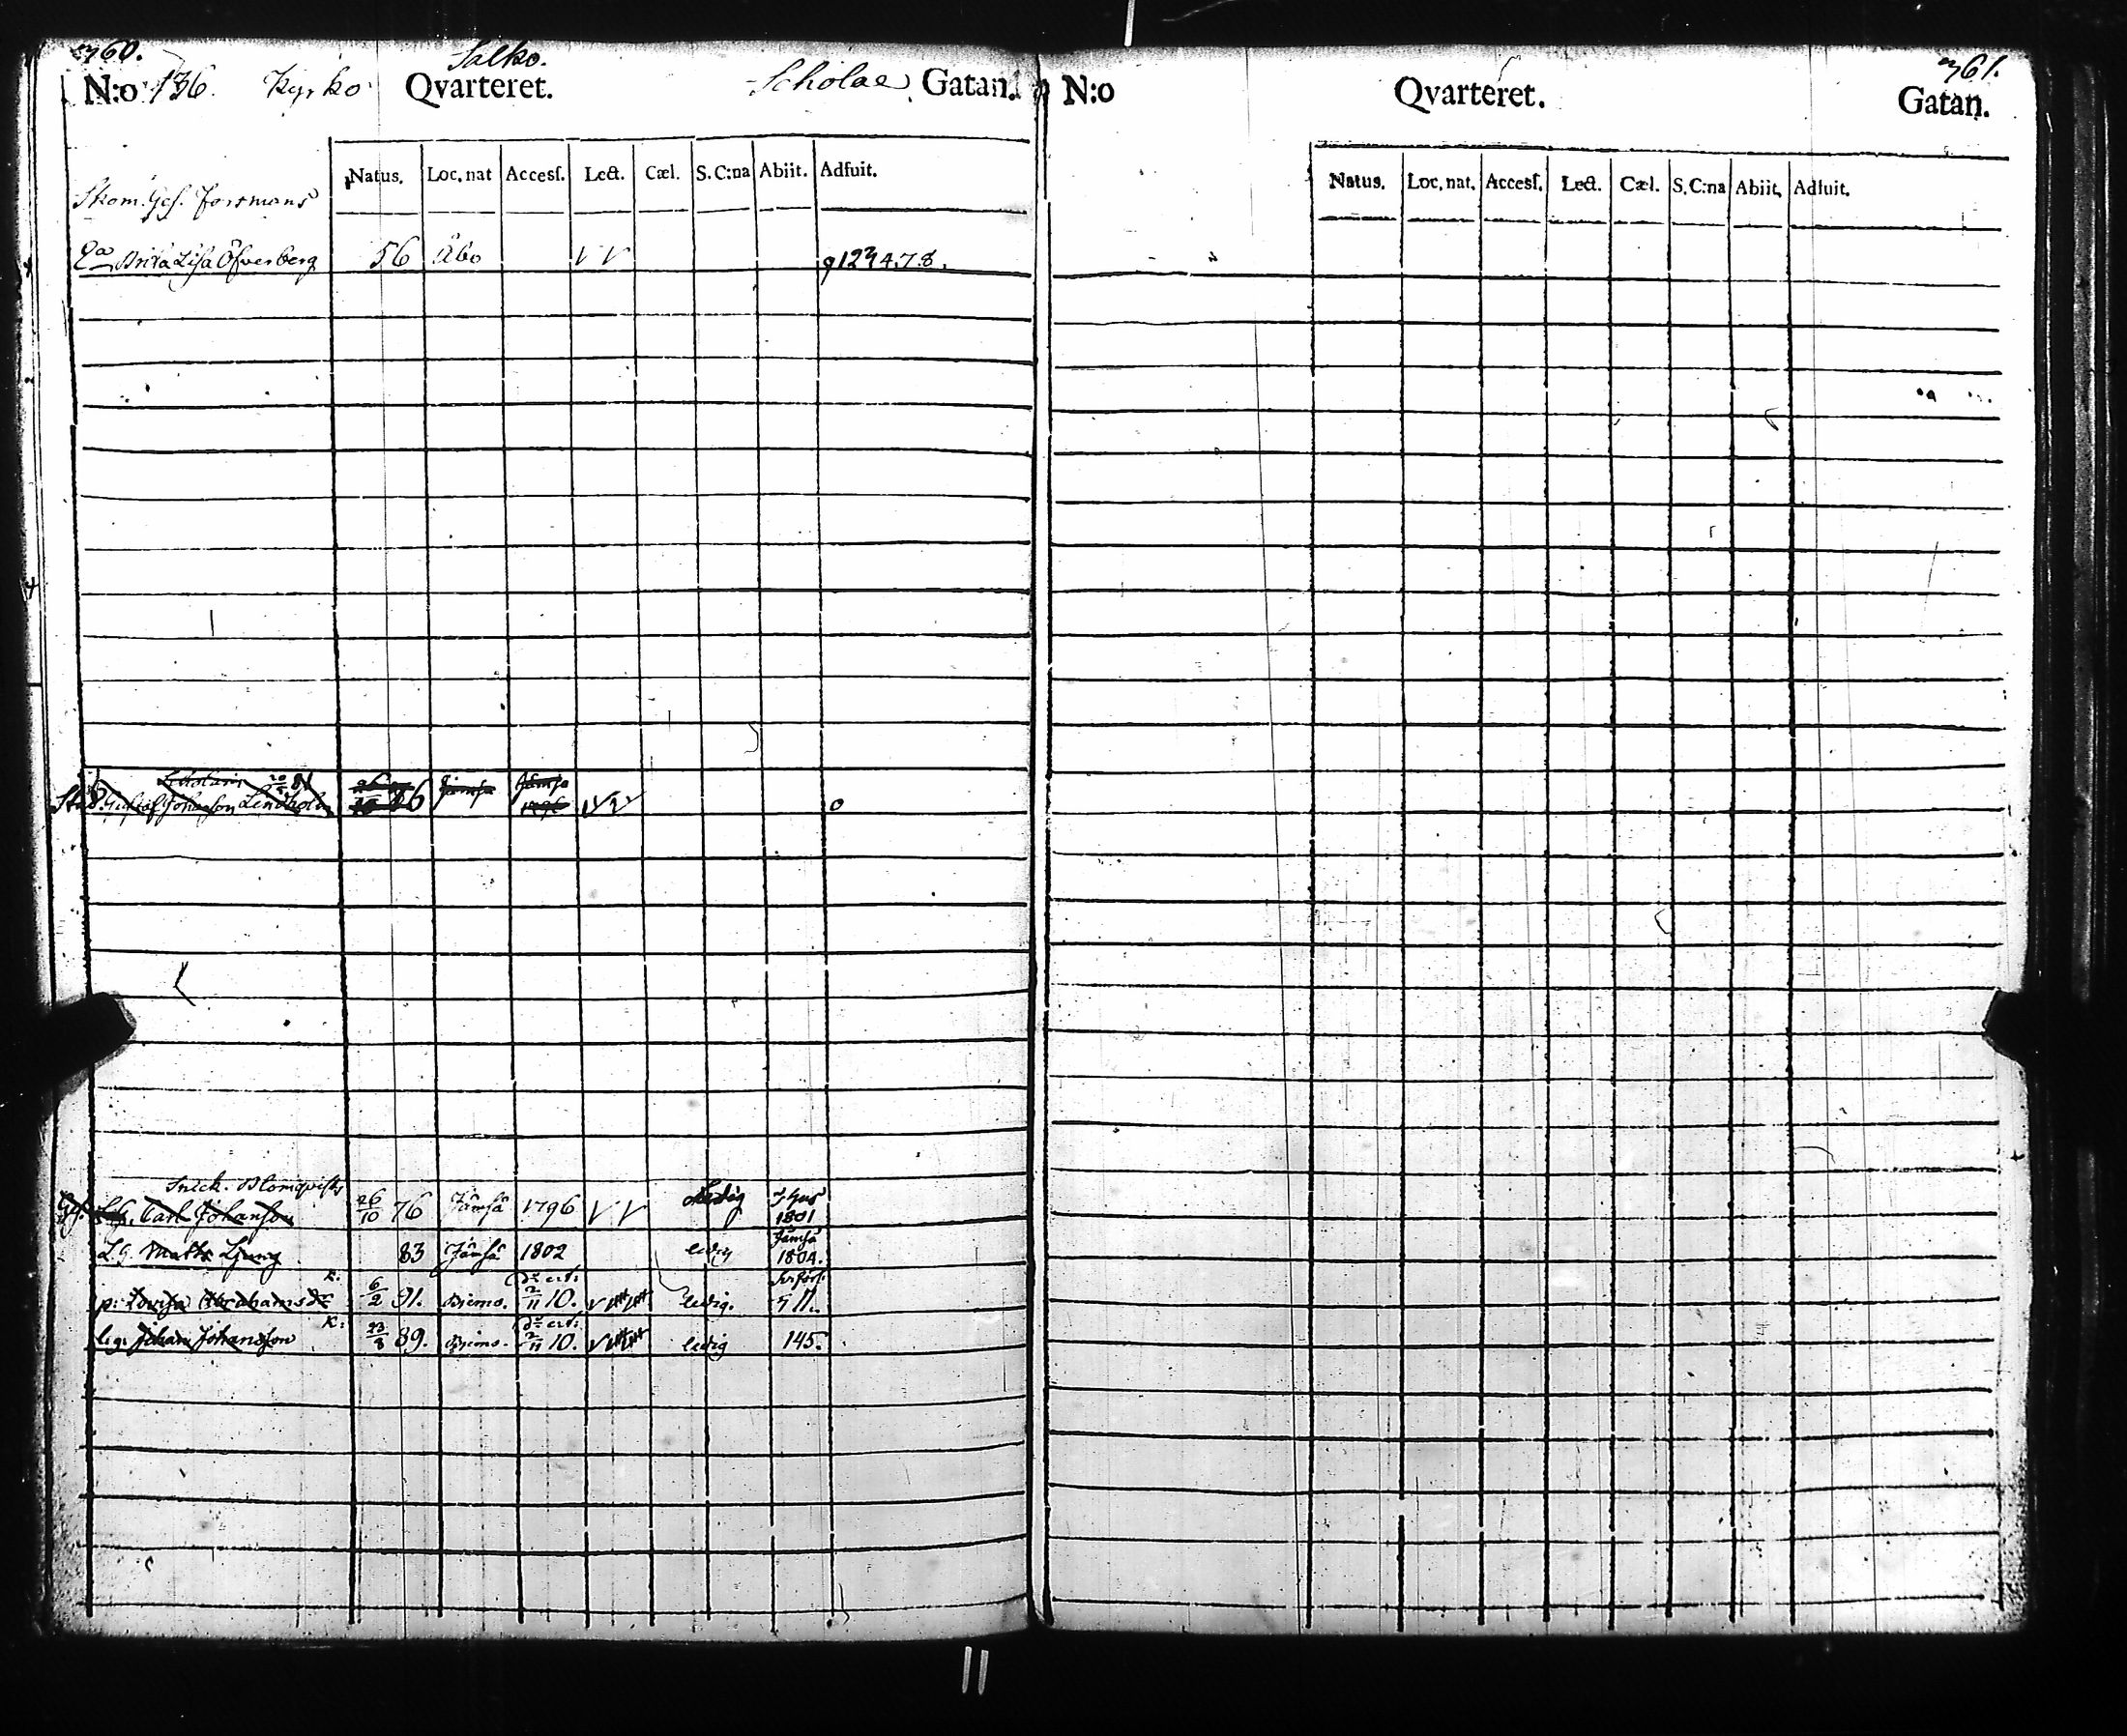 360.
Salko.
N:o 136. Kyrko Qvarteret. Scholae Gatan.
Natus. Loc. nat Accesſ. Lect. Cæl. S. C:na Abiit. Adfuit.
Skom. Ges. Forsmans
Brita Lisa Öfverberg 56 Åbo V V 9 1 2 3 4. 7. 8.
Gustaf Johansson Lindholm 86 Jämsä 1796 0
Snick. Blomqvists
Ges. Carl Johansson 26/10 76 Jämsä 1796 V V Ledig 1801
L.G. Matts Ljung 83 Jämsä 1802 ledig Jämsä 1804.
p: Lovisa Abrahamsdr K: 6/2 91. Bjerno. 2/11 10. ledig.
l.g. Johan Johansson K: 23/8 89. Bjerno. 2/11 10. ledig 145.
361.
N:o Qvarteret. Gatan.
Natus. Loc. nat. Accesſ. Lect. Cæl. S. C:na Abiit. Adfuit.